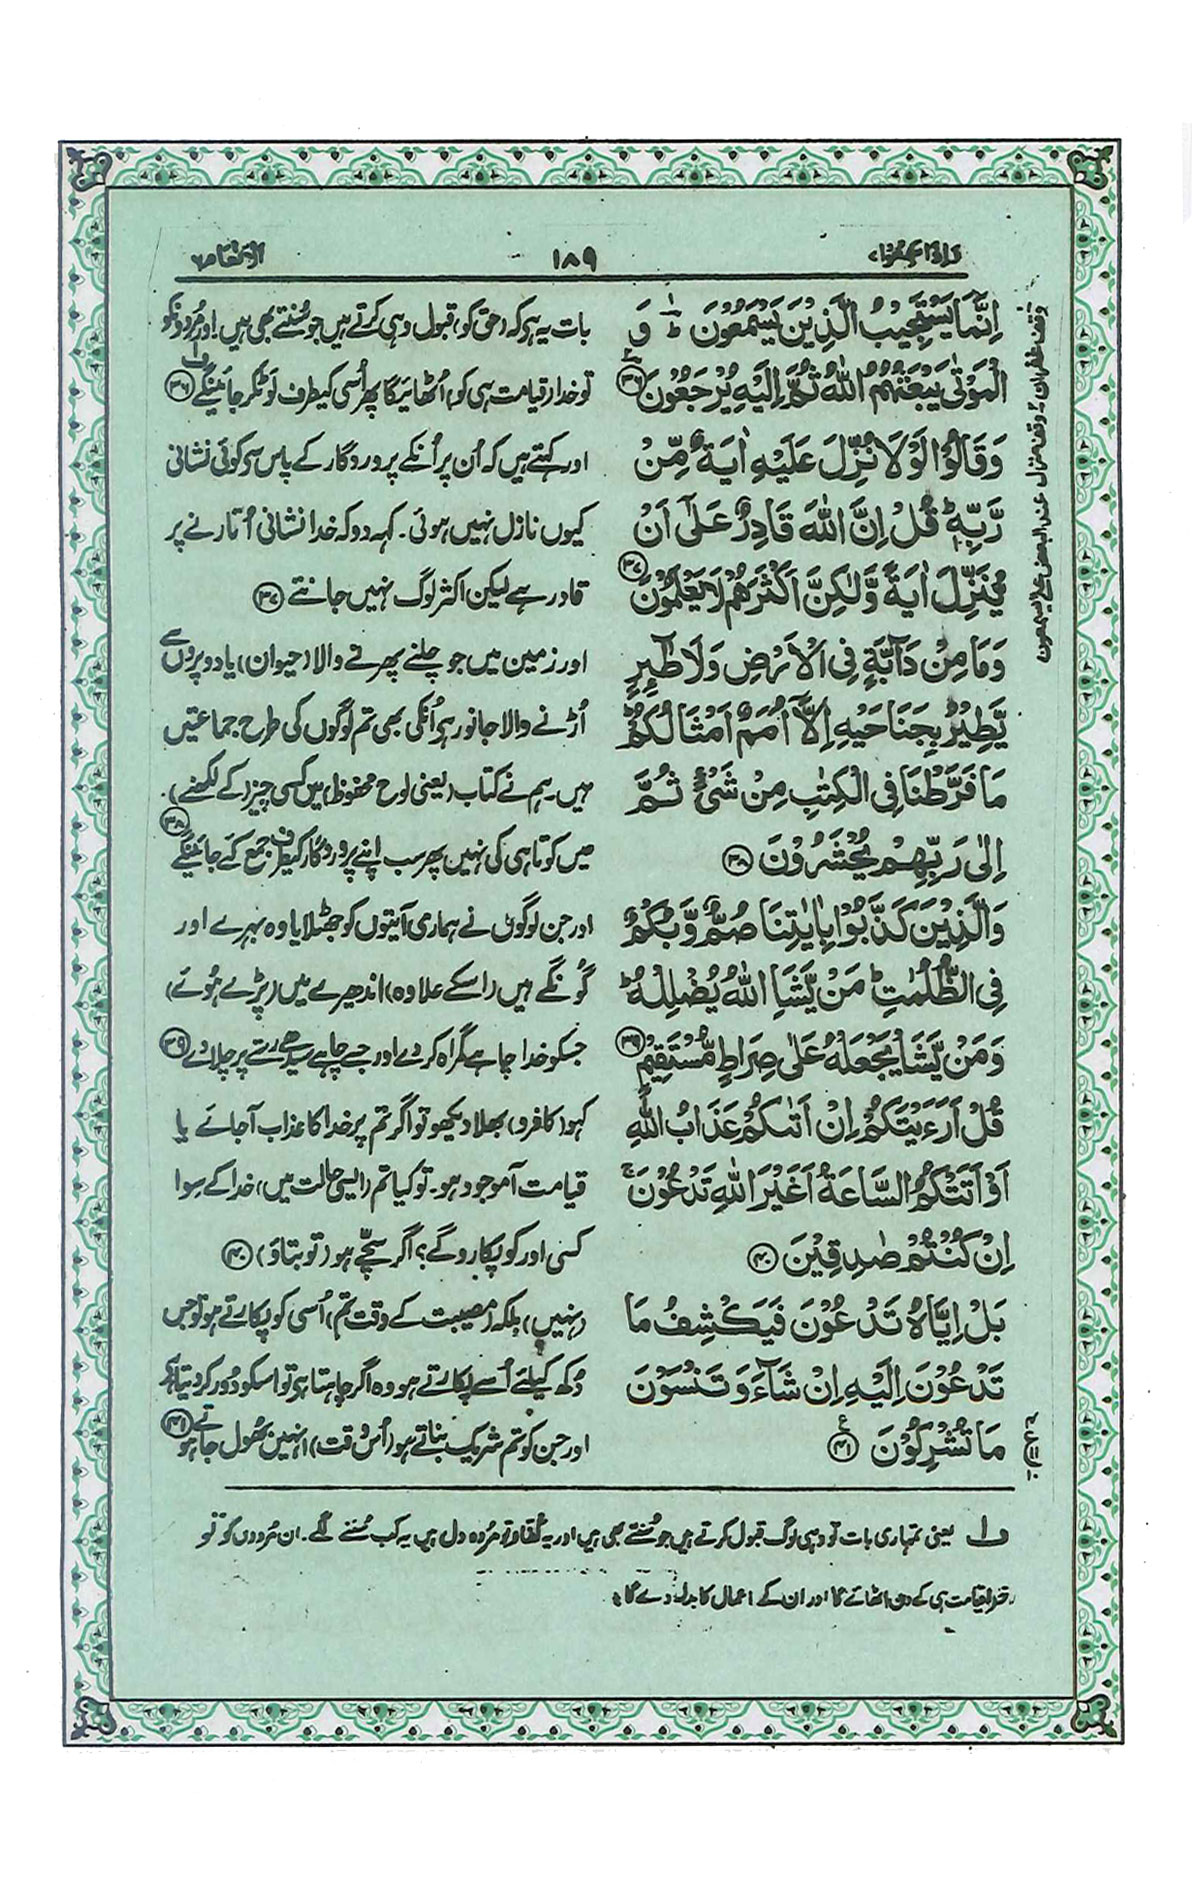 وَاِذَا سَمِعُوْا ٧
١٨٩
الانعام ٦
اِنَّمَا يَسْتَجِيْبُ الَّذِيْنَ يَسْمَعُوْنَ ؕ وَ
الْمَوْتٰى يَبْعَثُهُمُ اللّٰهُ ثُمَّ اِلَيْهِ يُرْجَعُوْنَ ۝۳۶
وَقَالُوْا لَوْلَا نُزِّلَ عَلَيْهِ اٰيَةٌ مِّنْ
رَّبِّهٖ ؕ قُلْ اِنَّ اللّٰهَ قَادِرٌ عَلٰٓى اَنْ
يُّنَزِّلَ اٰيَةً وَّلٰكِنَّ اَكْثَرَهُمْ لَا يَعْلَمُوْنَ ۝۳۷
وَمَا مِنْ دَآبَّةٍ فِى الْاَرْضِ وَلَا طٰٓئِرٍ
يَّطِيْرُ بِجَنَاحَيْهِ اِلَّآ اُمَمٌ اَمْثَالُكُمْ ؕ
مَا فَرَّطْنَا فِى الْكِتٰبِ مِنْ شَىْءٍ ثُمَّ
اِلٰى رَبِّهِمْ يُحْشَرُوْنَ ۝۳۸
وَالَّذِيْنَ كَذَّبُوْا بِاٰيٰتِنَا صُمٌّ وَّبُكْمٌ
فِى الظُّلُمٰتِ ؕ مَنْ يَّشَاِ اللّٰهُ يُضْلِلْهُ ؕ
وَمَنْ يَّشَاْ يَجْعَلْهُ عَلٰى صِرَاطٍ مُّسْتَقِيْمٍ ۝۳۹
قُلْ اَرَءَيْتَكُمْ اِنْ اَتٰىكُمْ عَذَابُ اللّٰهِ
اَوْ اَتَتْكُمُ السَّاعَةُ اَغَيْرَ اللّٰهِ تَدْعُوْنَ ۚ
اِنْ كُنْتُمْ صٰدِقِيْنَ ۝۴۰
بَلْ اِيَّاهُ تَدْعُوْنَ فَيَكْشِفُ مَا
تَدْعُوْنَ اِلَيْهِ اِنْ شَآءَ وَتَنْسَوْنَ
مَا تُشْرِكُوْنَ ۝۴۱ ع
بات یہ ہے کہ (حق کو) قبول وہی کرتے ہیں جو سُنتے بھی ہیں اور مُردونکو
تو خدا (قیامت ہی کو) اُٹھائیگا پھر اُسی کیطرف لَوٹکر جائینگے ف۱ ۝۳۶
اور کہتے ہیں کہ اُن پر اُنکے پروردگار کے پاس سے کوئی نشانی
کیوں نازل نہیں ہوئی۔ کہہ دو کہ خدا نشانی اُتارنے پر
قادر ہے لیکن اکثر لوگ نہیں جانتے ۝۳۷
اور زمین میں جو چلنے پھرنے والا (حیوان) یا دو پروں سے
اُڑنے والا جانور ہے اُنکی بھی تم لوگوں کی طرح جماعتیں
ہیں۔ ہم نے کتاب (یعنی لوح محفوظ) میں کسی چیز (کے لکھنے)
میں کوتاہی کی نہیں پھر سب اپنے پروردگار کیطرف جمع کئے جائینگے ۝۳۸
اور جن لوگوں نے ہماری آیتوں کو جھٹلایا وہ بہرے اور
گُونگے ہیں (اسکے علاوہ) اندھیرے میں (پڑے ہوئے)
جسکو خدا چاہے گمراہ کردے اور جسے چاہے سیدھے رستے پر چلادے ۝۳۹
کہو (کافرو) بھلا دیکھو تو اگر تم پر خدا کا عذاب آجائے یا
قیامت آموجود ہو۔ تو کیا تم (ایسی حالت میں) خدا کے سِوا
کسی اور کو پکاروگے؟ اگر سچّے ہو (تو بتاؤ) ۝۴۰
(نہیں) بلکہ (مصیبت کے وقت تم) اُسی کو پکارتے ہو تو جس
دُکھ کیلئے اُسے پکارتے ہو وہ اگر چاہتا ہے تو اسکو دُور کردیتا ہے
اور جن کو تم شریک بناتے ہو (اُس وقت) اُنہیں بھُول جاتے ہو ۝۴۱
ف۱ یعنی تمہاری بات تو وہی لوگ قبول کرتے ہیں جو سُنتے بھی ہیں اور یہ کُفّار تو مُردہ دل ہیں یہ کب سُننے لگے۔ ان مُردوں کو تو
خدا قیامت ہی کے دن اٹھائے گا اور ان کے اعمال کا بدلہ دے گا